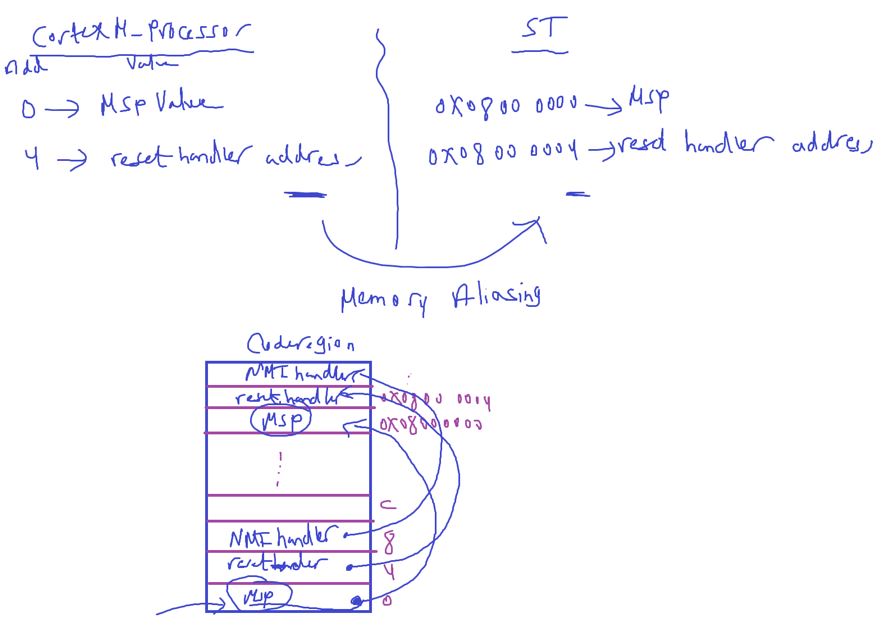 Cortex M-Processor
Add Value
0 → Msp Value
4 → reset handler address
ST
0x0800 0000 → Msp
0x0800 0004 → reset handler address
Memory Aliasing
Coderegion
NMI handler
reset handler 0x0800 0004
Msp 0x0800 0000
C
NMI handler 8
reset hander 4
Msp 0